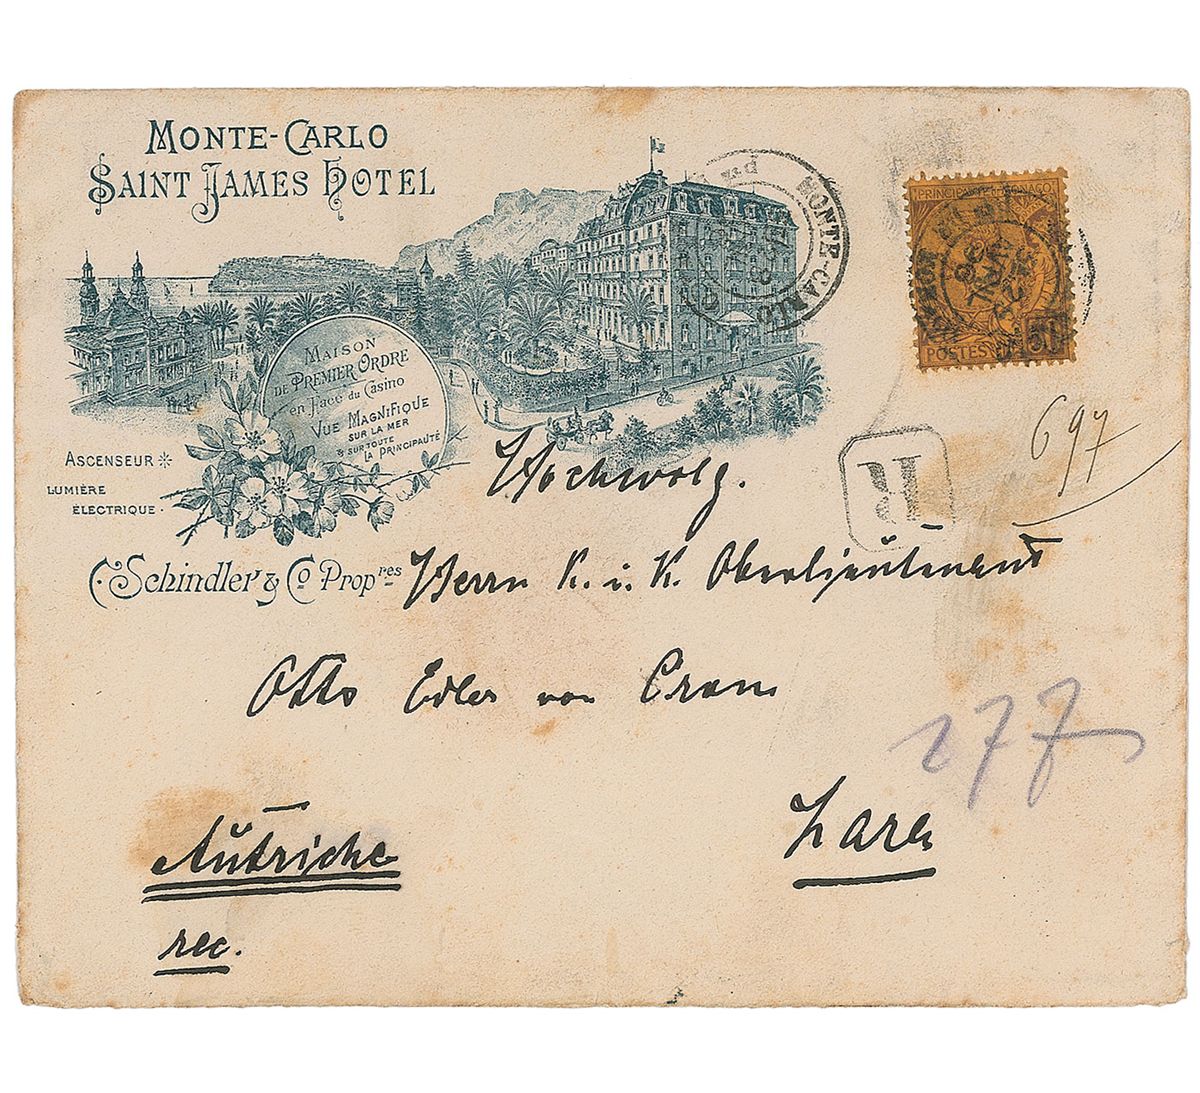 MONTE-CARLO
SAINT JAMES HOTEL
MAISON
DE PREMIER ORDRE
en Face du Casino
VUE MAGNIFIQUE
SUR LA MER
& SUR TOUTE
LA PRINCIPAUTÉ
ASCENSEUR
LUMIÈRE
ÉLECTRIQUE
C. Schindler & Co Propres
MONTE-CARLO
PRINCIPAUTÉ DE MONACO
POSTES
50
R
697
Hochwolg.
Herrn K. u. K. Oberlieutenant
Otto Edler von
277
Zara
Autriche
rec.